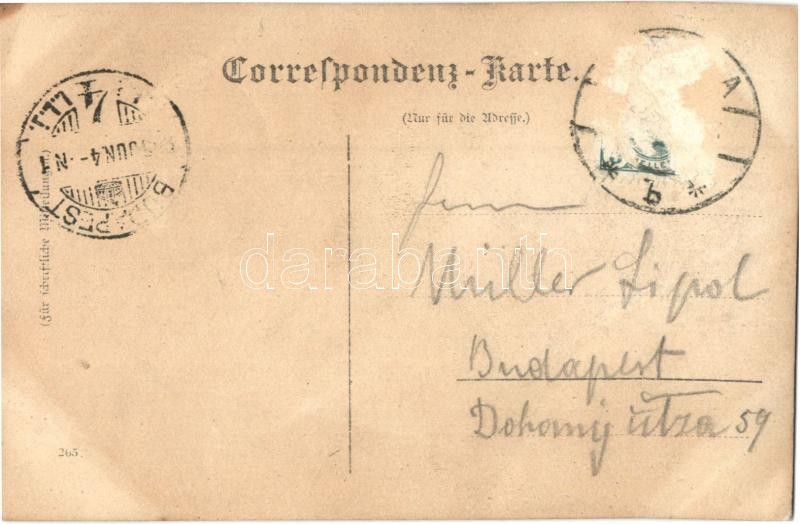 Correspondenz-Karte.
(Nur für die Adresse.)
(Für schriftliche Mitteilungen.)
BUDAPEST
JUN 4 - N1
Herrn
Müller Lipol
Budapest
Dohany utza 59
265.
darabanth